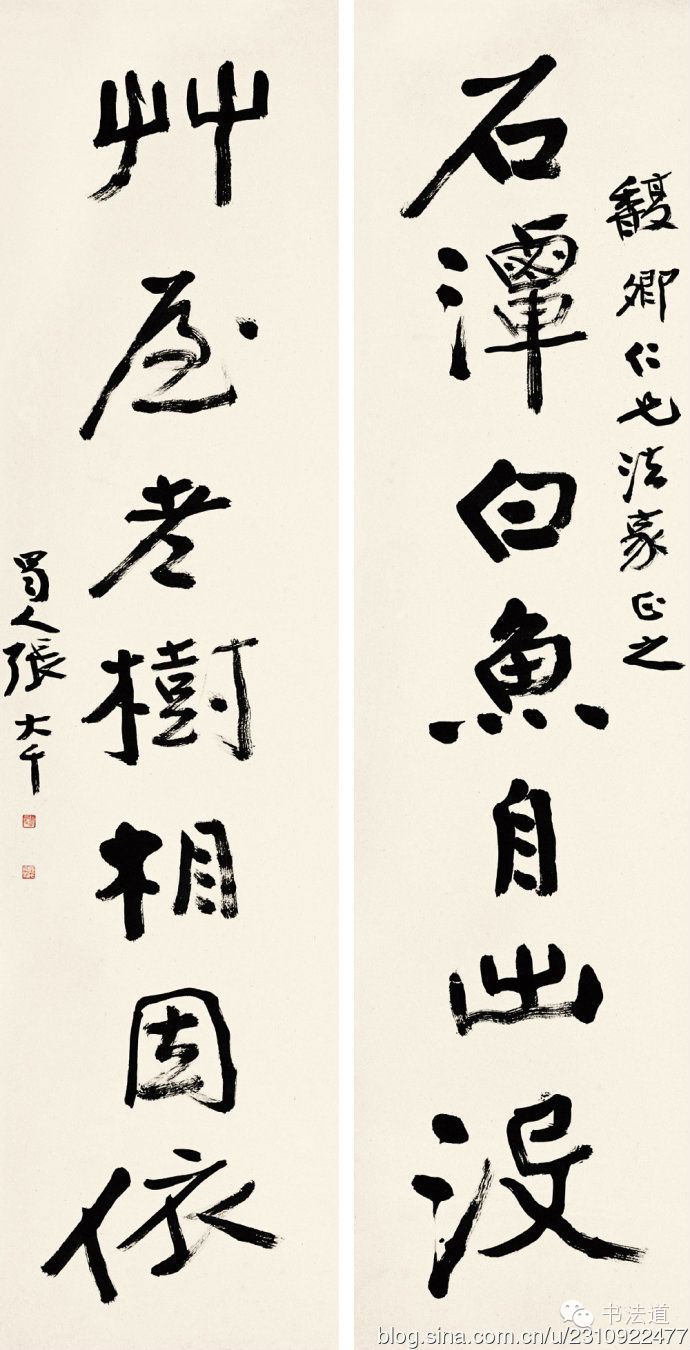 馥卿仁兄法家正之
石潭白魚自出没
艸屋老樹相因依
蜀人張大千
书法道
blog.sina.com.cn/u/2310922477